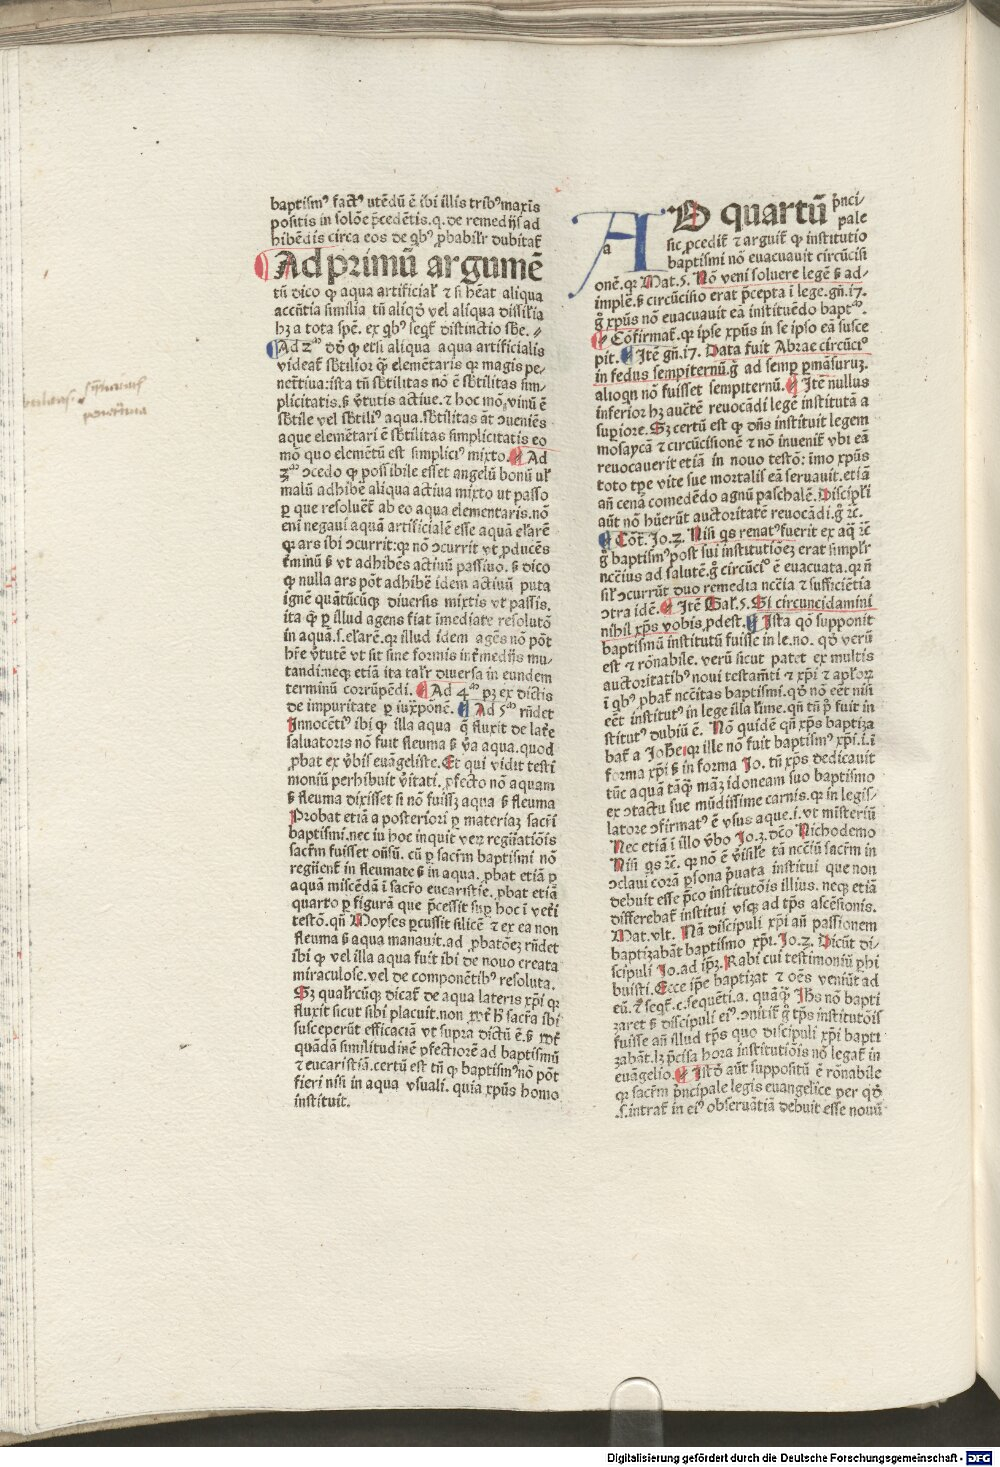 baptism⁹ fact⁹ utēdū ē ibi illis trib⁹ maxīs
positis in solōe p̄cedētis.q. de remedijs ad
hibēdis circa eos de qb⁹ ꝓbabilr̄ dubitat̄
Ad primū argumē
tū dico ꝙ aqua artificial̄ ⁊ si hēat aliqua
accn̄tia similia tn̄ aliqd̄ vel aliqua dissīlia
hꝫ a tota spē. ex qb⁹ seqt̄ distinctio sb̄e.
Ad 2ᵐ dd̄ ꝙ etsi aliqua aqua artificialis
videat̄ sb̄tilior q̄ꝫ elemētaris qꝛ magis pe-
net̄tiua: ista tn̄ sb̄tilitas nō ē sb̄tilitas sim-
plicitatis.ꝫ v̄tutis actiue. ⁊ hoc mō vinū ē
sb̄tile vel sb̄tili⁹ aqua. sb̄tilitas āt ↄueniēs
aque elemētari ē sb̄tilitas simplicitatis eo
mō quo elemētū est simplici⁹ mixto. Ad
3ᵐ ↄcedo ꝙ possibile esset angelū bonū ul̄
malū adhibē aliqua actiua mixto ut passo
ꝑ que resoluēt̄ ab eo aqua elementaris. nō
eni negaui aquā artificialē esse aquā el̄arē
qꝛ ars ibi ↄcurrit: qꝛ nō ↄcurrit vt ꝓducēs
t̄minū ꝫ vt adhibēs actiuū passiuo. ꝫ dico
ꝙ nulla ars pōt adhibē idem actiuū puta
ignē quātūcūqꝫ diuersis mixtis vt passis.
ita ꝙ ꝑ illud agens fiat īmediate resolutō
in aquā.s.el̄arē. qꝛ illud idem agēs nō pōt
hr̄e v̄tutē vt sit sine formis int̄medijs mu-
tandi: neqꝫ etiā ita talr̄ diuersa in eundem
terminū corrūpēdi. Ad 4ᵐ pꝫ ex dictis
de impuritate ꝑ iuxᵖpōnē. Ad 5ᵐ rn̄det
Innocēti⁹ ibi ꝙ illa aqua q̄ fluxit de lat̄e
saluatoris nō fuit fleuma ꝫ v̄a aqua. quod
ꝓbat ex v̄bis euāgeliste. Et qui vidit testi
moniū perhibuit v̄itati. ꝓfecto nō aquam
ꝫ fleuma dixisset si nō fuissꝫ aqua ꝫ fleuma
Probat etiā a posteriori ꝑ materiaꝫ sacr̄i
baptismi. nec iu hoc inquit veꝝ regn̄atiōis
sacr̄m fuisset on̄sū. cū ꝑ sacr̄m baptismi nō
regn̄ent̄ in fleumate ꝫ in aqua. ꝓbat etiā ꝑ
aquā miscēdā ī sacr̄o eucaristie. ꝓbat etiā
quarto ꝑ figurā que p̄cessit suꝑ hoc ī vet̄i
testō. qn̄ Moyses ꝑcussit silicē ⁊ ex ea non
fleuma ꝫ aqua manauit. ad ꝓbatōeꝫ rn̄det
ibi ꝙ vel illa aqua fuit ibi de nouo creata
miraculose. vel de componētib⁹ resoluta.
Sꝫ qualr̄cūqꝫ dicat̄ de aqua lateris xp̄i qꝛ
fluxit sicut sibi placuit. non ꝓpt̄ h̄ sacr̄a ibi
susceperūt efficaciā vt supra dictū ē. ꝫ ꝓpt̄
quādā similitudinē ꝑfectiorē ad baptismū
⁊ eucaristiā. certū est tn̄ ꝙ baptism⁹ nō pōt
fieri nisi in aqua vsuali. quia xp̄us homo
instituit.
AD quartū p̄nci-
pale
a
sic ꝓcedit̄ ⁊ arguit̄ ꝙ institutio
baptismi nō euacuauit circūcisi
onē. qꝛ Mat.5. Nō veni soluere legē ꝫ ad-
implē. ꝫ circūcisio erat p̄cepta ī lege. gn̄.17.
g̊ xp̄us nō euacuauit eā instituēdo baptᵐ.
Cōfirmat̄. qꝛ ipse xp̄us in se ipso eā susce
pit. Itē gn̄.17. Data fuit Abrae circūci⁰
in fedus sempiternū. g̊ ad semꝑ ꝑmāsuruꝫ.
alioqn̄ nō fuisset sempiternū. Itē nullus
inferior hꝫ auc̄tē reuocādi legē institutā a
supiore. Sꝫ certū est ꝙ dn̄s instituit legem
mosaycā ⁊ circūcisionē ⁊ nō inuenit̄ vbi eā
reuocauerit etiā in nouo testō: īmo xp̄us
toto tp̄e vite sue mortalis eā seruauit. etiā
an̄ cenā comedēdo agnū paschalē. Discipl̄i
aūt nō hūerūt auctoritatē reuocādi. g̊ ⁊c̄.
Cōt̄. Jo.3. Nisi qs renat⁹ fuerit ex aq̄ ⁊c̄
g̊ baptism⁹ post sui institutiōeꝫ erat simplr̄
ncc̄ius ad salutē. g̊ circūci⁰ ē euacuata. qꝛ n̄
sil̄ ↄcurrūt duo remedia ncc̄ia ⁊ sufficiētia
ↄtra idē. Itē Gal̄.5. Si circuncidamini
nihil xp̄s vobis ꝓdest. Ista qō supponit
baptismū institutū fuisse in le.no. qd̄ verū
est ⁊ rōnabile. verū sicut patet ex multis
auctoritatib⁹ noui testam̄ti ⁊ xp̄i ⁊ apl̄oꝝ
ī qb⁹ ꝓbat̄ ncc̄itas baptismi. qd̄ nō eēt nisi
eēt institut⁹ in lege illa. sine. qn̄ tn̄ p̄ fuit in
stitut⁹ dubiū ē. Nō quidē qn̄ xp̄s baptiza
bat̄ a Joh̄e qꝛ ille nō fuit baptism⁹ xp̄i.i.ī
forma xp̄i ꝫ in forma Jo. tn̄ xp̄s dedicauit
tūc aquā tāqꝫ māꝫ idoneam suo baptismo
ex ↄtactu sue mūdissime carnis. qꝛ in legis-
latore ↄfirmat⁹ ē vsus aque.i.vt misteriū
Nec etiā ī illo v̄bo Jo.3. dc̄o Nichodemo
Nisi qs ⁊c̄. qꝛ nō ē v̄isil̄e tā ncc̄iū sacr̄m in
ↄclaui corā ꝑsona p̄uata institui que non
debuit esse p̄co institutōis illius. neqꝫ etiā
differebat̄ institui vsqꝫ ad tp̄s ascēsionis.
Mat.vlt. Nā discipuli xp̄i an̄ passionem
baptizabāt baptismo xp̄i. Jo.3. Dicūt di-
scipuli Jo. ad ip̄ꝫ. Rabi cui testimoniū ꝑhi
buisti. Ecce ip̄e baptizat ⁊ oēs veniūt ad
eū. ⁊ seqt̄.c.sequēti.a. quāqꝫ Jh̄s nō bapti
zaret ꝫ discipuli ei⁹. ↄn̄it̄ g̊ tp̄s institutōis
fuisse an̄ illud tp̄s quo discipuli xp̄i bapti
zabāt. lꝫ p̄cisa hora institutiōis nō legat̄ in
euāgelio. Istd̄ aūt suppositū ē rōnabile
qꝛ sacr̄m p̄ncipale legis euangelice per qd̄
.s.intrat̄ in ei⁹ obseruātiā debuit esse nouū
Digitalisierung gefördert durch die Deutsche Forschungsgemeinschaft - DFG